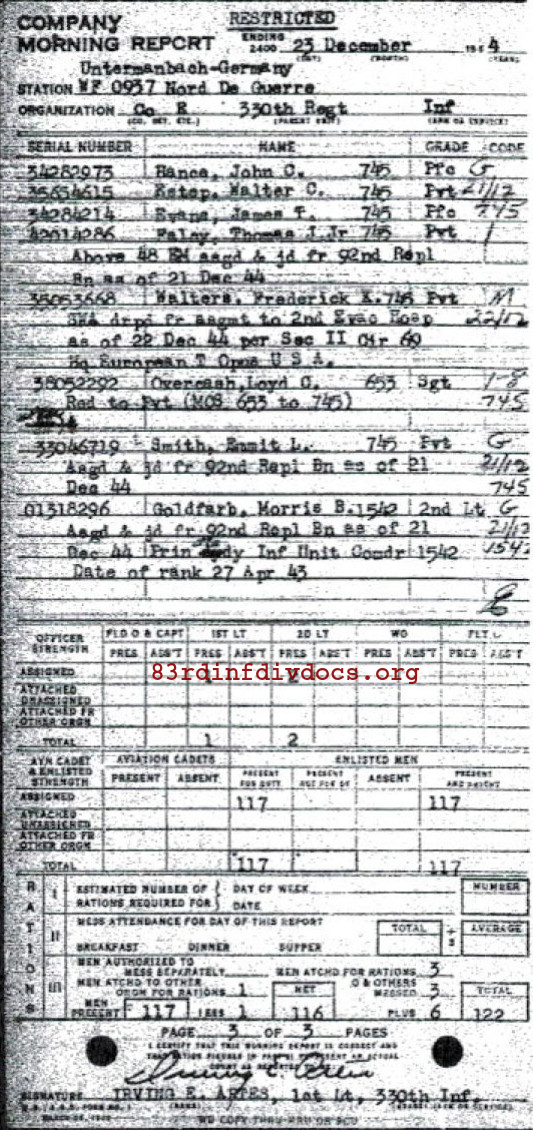 COMPANY RESTRICTED
MORNING REPORT ENDING 2400 23 December 194 4
(DAY) (MONTH) (YEAR)
Untermanbach-Germany
STATION WF 0937 Nord De Guerre
ORGANIZATION Co E 330th Regt Inf
(CO. DET. ETC.) (PARENT UNIT) (ARM OR SERVICE)
SERIAL NUMBER NAME GRADE CODE
34282973 Hance, John C. 745 Pfc G
35654615 Estep, Walter C. 745 Pvt 21/12
34284214 Evans, James T. 745 Pfc 745
42014286 Faley, Thomas J Jr 745 Pvt
Above 48 EM asgd & jd fr 92nd Repl
Bn as of 21 Dec 44
35053668 Walters, Frederick K. 745 Pvt M
SWA drpd fr asgmt to 2nd Evac Hosp 22/12
as of 22 Dec 44 per Sec II Cir 69
Hq European T Opns U S A.
38052292 Overcash, Loyd C. 653 Sgt
Red to Pvt (MOS 653 to 745) 745
33046719 Smith, Emmit L. 745 Pvt G
Asgd & jd fr 92nd Repl Bn as of 21 21/12
Dec 44 745
01318296 Goldfarb, Morris B. 1542 2nd Lt G
Asgd & jd fr 92nd Repl Bn as of 21 21/12
Dec 44 Prin dy Inf Unit Comdr 1542 1542
Date of rank 27 Apr 43
E
OFFICER STRENGTH FLD O & CAPT 1ST LT 2D LT WO FLT O
PRES ABS'T PRES ABS'T PRES ABS'T PRES ABS'T PRES ABS'T
ASSIGNED 1 2
83rdinfdivdocs.org
ATTACHED UNASSIGNED
ATTACHED FR OTHER ORGN
TOTAL 1 2
AVN CADET & ENLISTED STRENGTH AVIATION CADETS ENLISTED MEN
PRESENT ABSENT PRESENT FOR DUTY PRESENT NOT FOR DY ABSENT PRESENT AND ABSENT
ASSIGNED 117 117
ATTACHED UNASSIGNED
ATTACHED FR OTHER ORGN
TOTAL 117 117
RATIONS
I ESTIMATED NUMBER OF RATIONS REQUIRED FOR DAY OF WEEK DATE NUMBER
II MESS ATTENDANCE FOR DAY OF THIS REPORT TOTAL ÷ 3 AVERAGE
BREAKFAST DINNER SUPPER
III MEN AUTHORIZED TO MESS SEPARATELY MEN ATCHD FOR RATIONS 3
MEN ATCHD TO OTHER ORGN FOR RATIONS 1 NET O & OTHERS MESSED 3 TOTAL
MEN PRESENT 117 LESS 1 116 PLUS 6 122
PAGE 3 OF 3 PAGES
I CERTIFY THAT THIS MORNING REPORT IS CORRECT AND
THAT RATION FIGURES IN PART III REPRESENT AN ACTUAL
COUNT AS REPORTED
SIGNATURE IRVING E. ARTES, 1st Lt, 330th Inf.
(NAME) (GRADE) (ARM OR SERVICE)